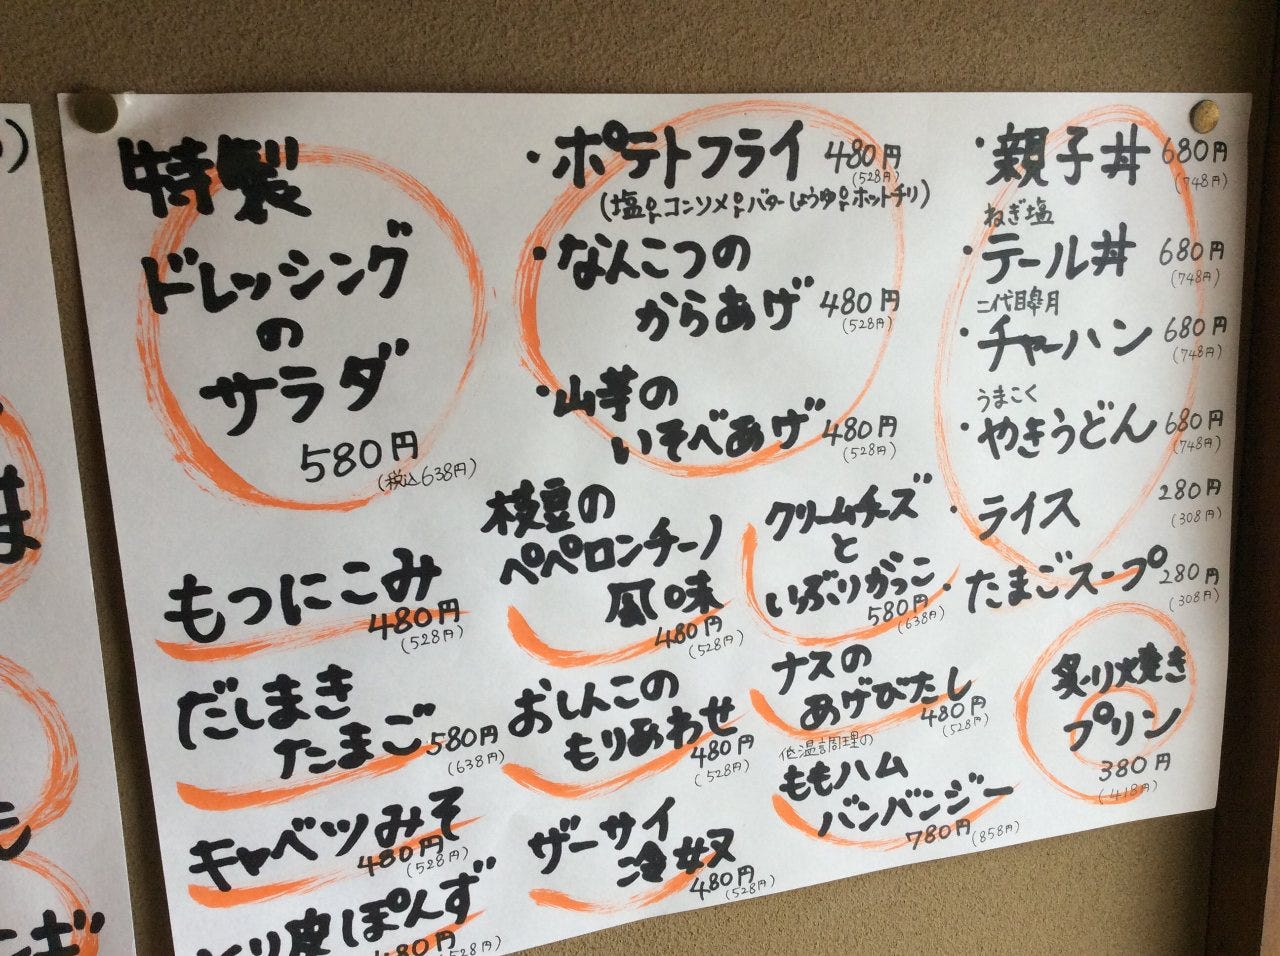 特製
ドレッシング
の
サラダ
580円
(税込638円)
・ポテトフライ 480円
(528円)
(塩or コンソメorバターしょうゆorホットチリ)
・なんこつの
からあげ 480円
(528円)
・山芋の
いそべあげ 480円
(528円)
・親子丼 680円
(748円)
ねぎ塩
・テール丼 680円
(748円)
二代目皐月
・チャーハン 680円
(748円)
うまこく
・やきうどん 680円
(748円)
・ライス 280円
(308円)
・たまごスープ 280円
(308円)
もつにこみ
480円
(528円)
枝豆の
ペペロンチーノ
風味
480円
(528円)
クリームチーズ
と
いぶりがっこ
580円
(638円)
だしまき
たまご 580円
(638円)
おしんこの
もりあわせ
480円
(528円)
ナスの
あげびたし
480円
(528円)
低温調理の
ももハム
バンバンジー
780円 (858円)
炙り焼き
プリン
380円
(418円)
キャベツみそ
480円
(528円)
ザーサイ
冷奴
480円
(528円)
とり皮ぽんず
480円
(528円)